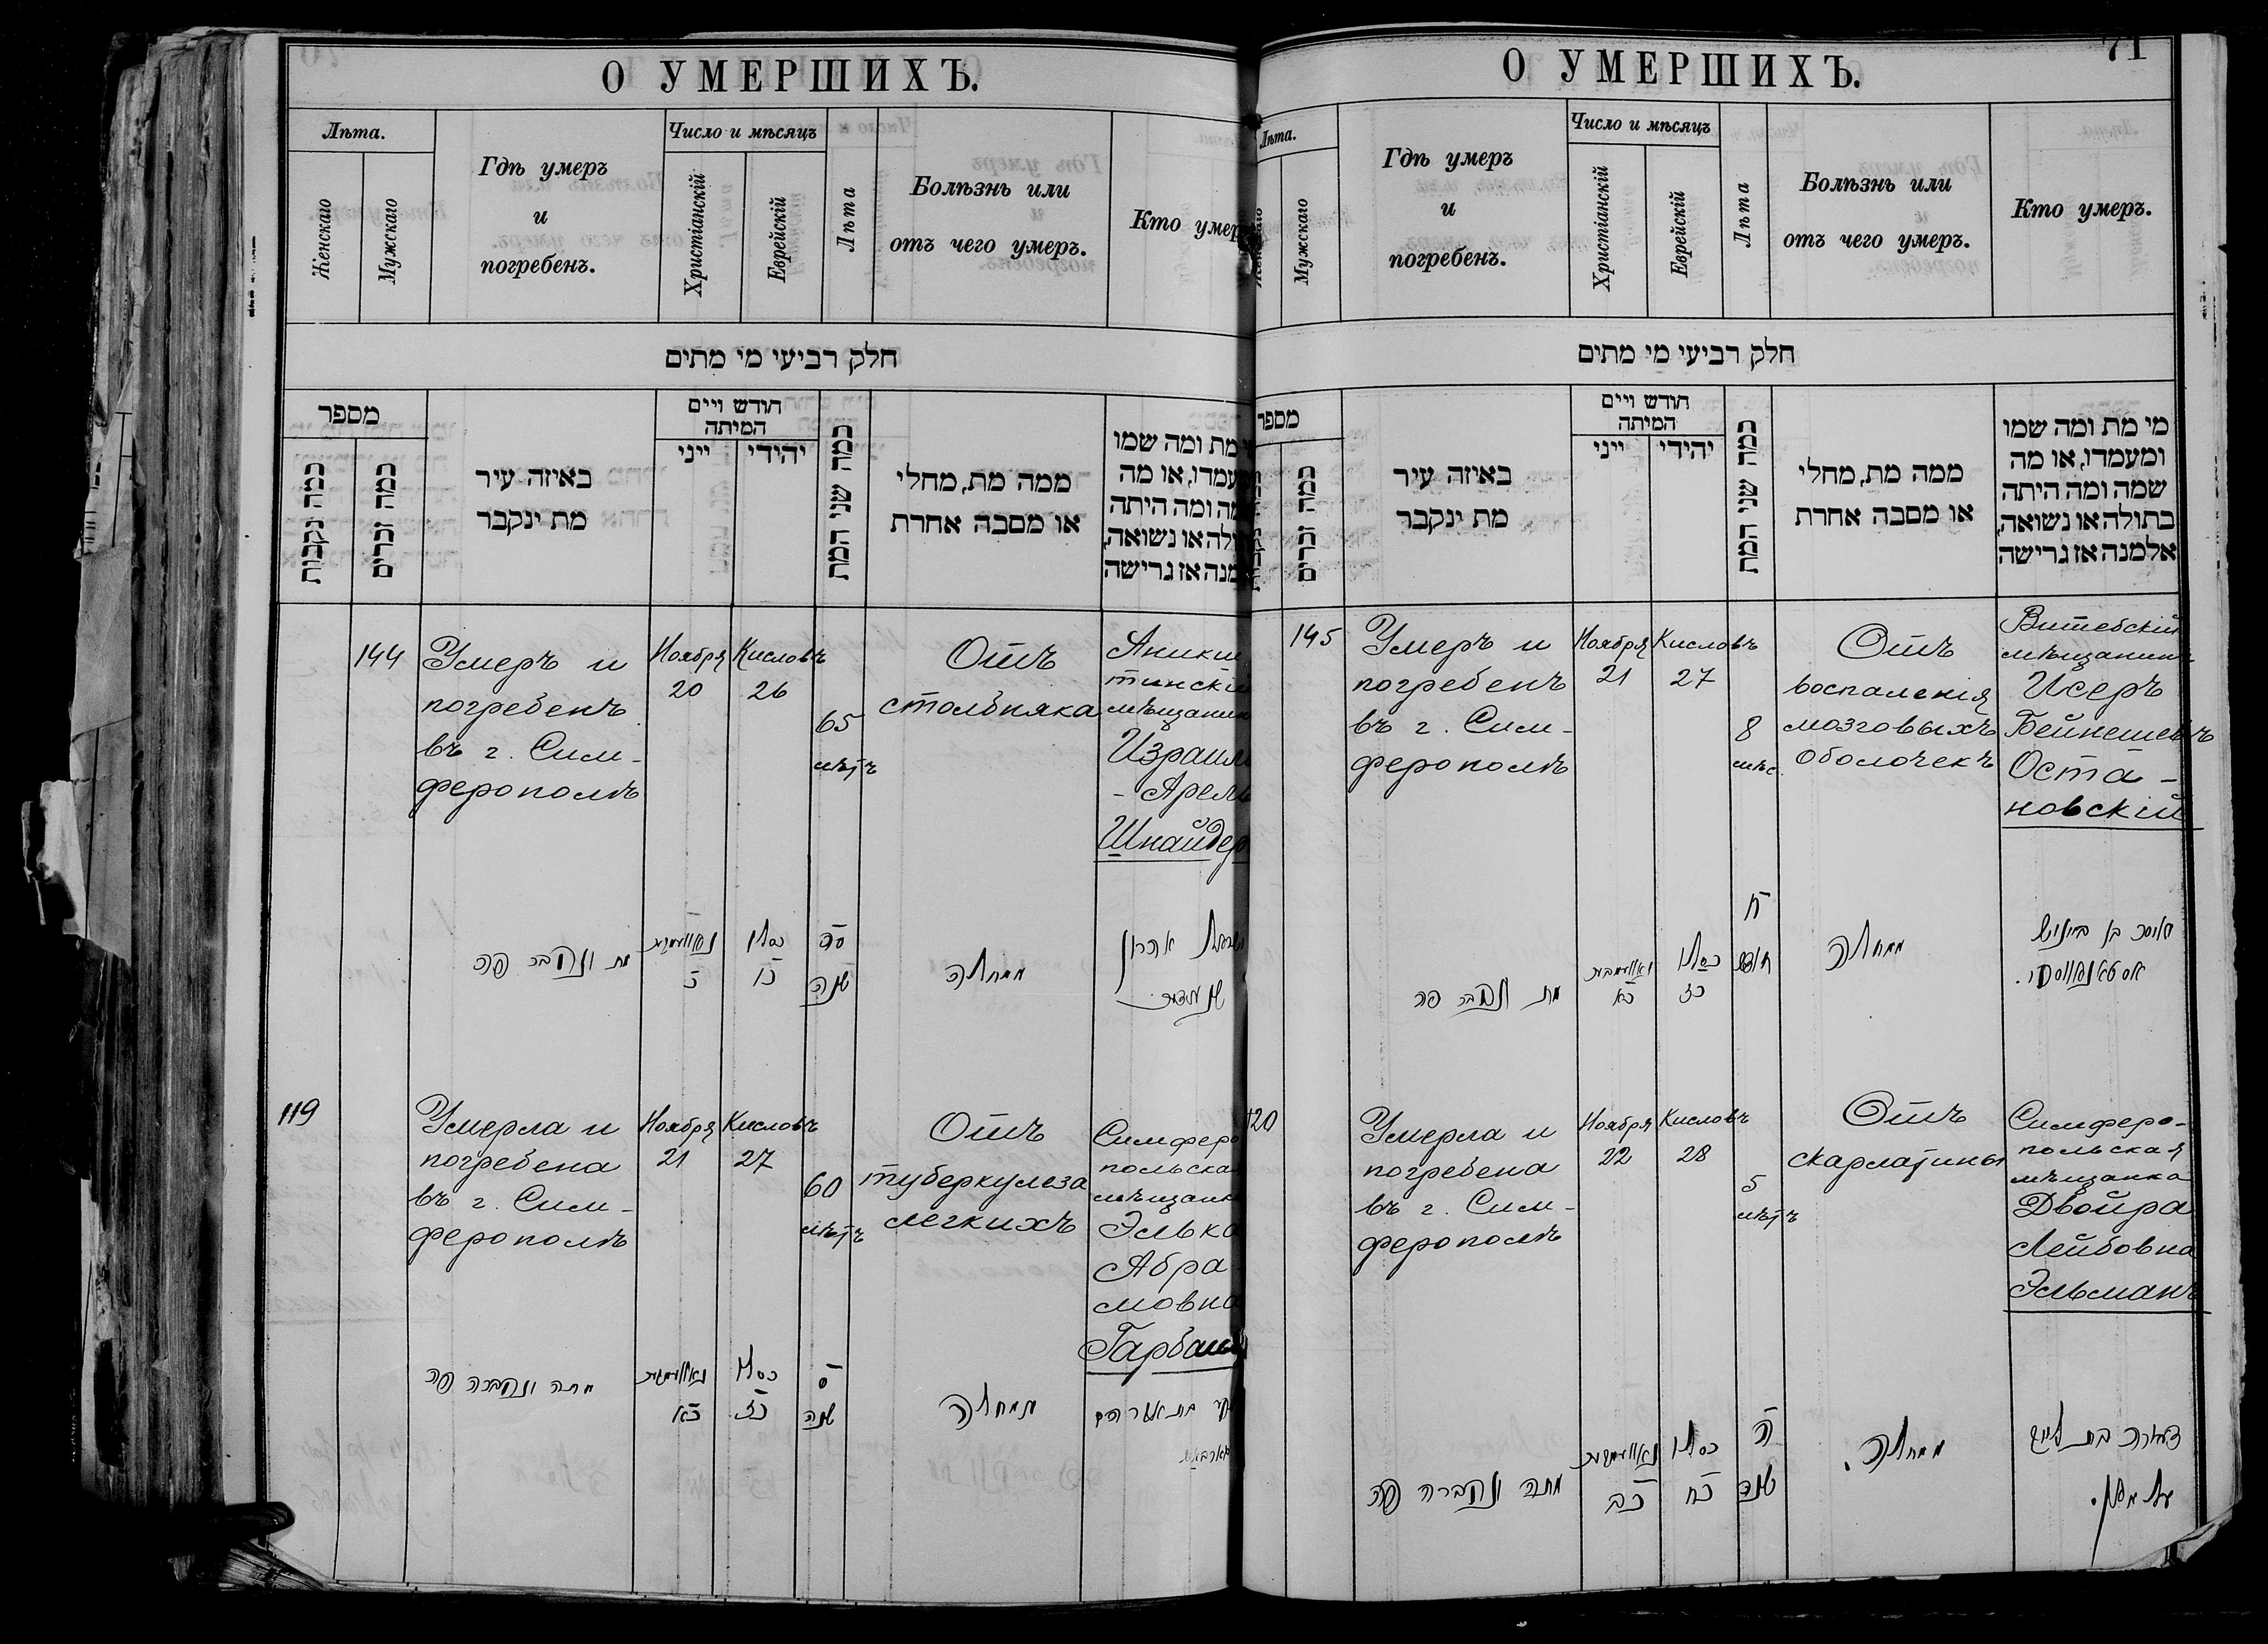 О УМЕРШИХЪ.
Лѣта.
Женскаго
Мужскаго
Гдѣ умеръ
и
погребенъ.
Число и мѣсяцъ
Христіанскій
Еврейскій
Лѣта
Болѣзнь или
отъ чего умеръ.
Кто умер
חלק רביעי מי מתים
מספר
כמה נקבות
כמה זכרים
באיזה עיר
מת ינקבר
חודש ויים
המיתה
ייני
יהידי
כמה שני המת
ממה מת, מחלי
או מסבה אחרת
מת ומה שמו
עמדו, או מה
מה ומה היתה
ולה או נשואה,
מנה אז גרישה
144
Умеръ и
погребенъ
въ г. Сим-
ферополѣ
Ноября
20
Кисловъ
26
65
лѣтъ
Отъ
столбняка
мѣщанин
Израил
- Арел
Шнайдер
מת ונקבר פה
כסלו
כו
סה
שנה
ממחלה
אהרון
119
Умерла и
погребена
въ г. Сим-
ферополѣ
Ноября
21
Кисловъ
27
60
лѣтъ
Отъ
туберкулеза
легкихъ
Симферо
польска
мѣщанк
Элька
Абра
мовна
Гарба
מתה ונקברה פה
כא
כסלו
כז
ס
שנה
ממחלה
בת אברהם
71
О УМЕРШИХЪ.
Лѣта.
Мужскаго
Гдѣ умеръ
и
погребенъ.
Число и мѣсяцъ
Христіанскій
Еврейскій
Лѣта
Болѣзнь или
отъ чего умеръ.
Кто умеръ.
חלק רביעי מי מתים
מספר
כמה זכרים
באיזה עיר
מת ינקבר
חודש ויים
המיתה
ייני
יהידי
כמה שני המת
ממה מת, מחלי
או מסבה אחרת
מי מת ומה שמו
ומעמדו, או מה
שמה ומה היתה
בתולה או נשואה,
אלמנה אז גרישה
145
Умеръ и
погребенъ
въ г. Сим-
ферополѣ
Ноября
21
Кисловъ
27
8
мѣс.
Отъ
воспаленія
мозговыхъ
оболочекъ
Витебскій
мѣщанинъ
Исеръ
Бейнешевъ
Оста-
новскій
מת ונקבר פה
כא
כסלו
כז
ח
חודש
ממחלה
120
Умерла и
погребена
въ г. Сим-
ферополѣ
Ноября
22
Кисловъ
28
5
лѣтъ
Отъ
скарлатины
Симферо-
польская
мѣщанка
Двойра
Лейбовна
Эльманъ
מתה ונקברה פה
כב
כסלו
כח
ה
שנה
ממחלה.